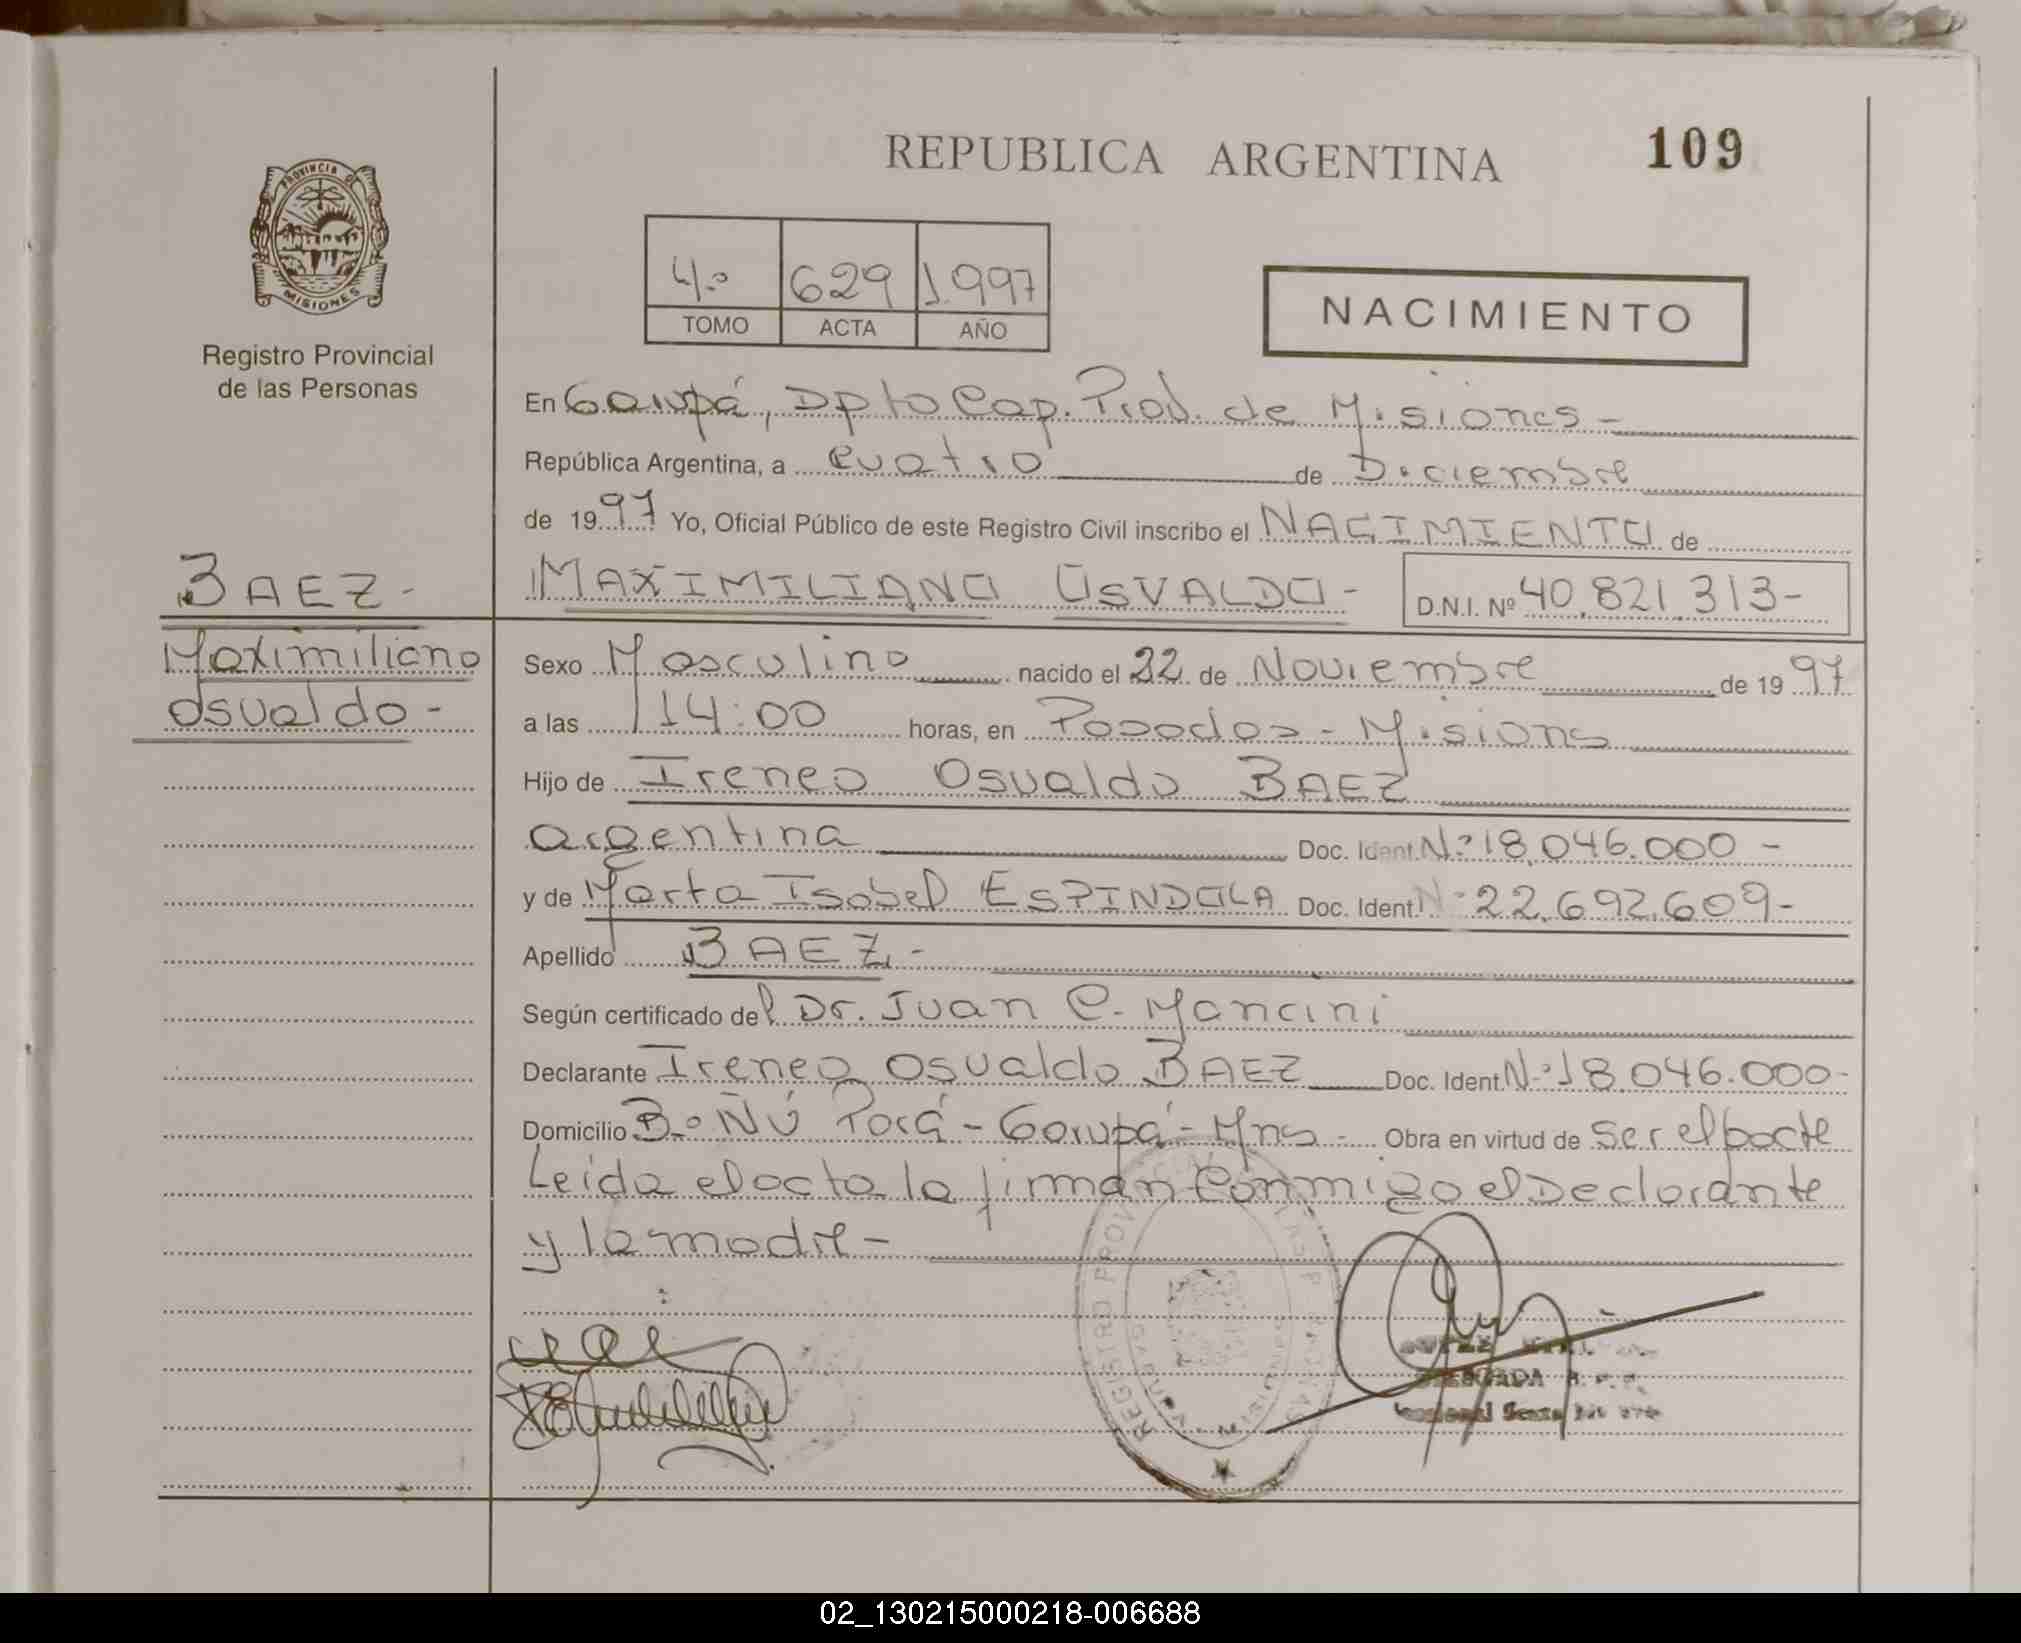 REPUBLICA ARGENTINA
109
PROVINCIA DE
MISIONES
Registro Provincial
de las Personas
4.º 629 1.997
TOMO ACTA AÑO
NACIMIENTO
En Garupá, Dpto Cap. Prov. de Misiones -
República Argentina, a cuatro de Diciembre
de 1997 Yo, Oficial Público de este Registro Civil inscribo el NACIMIENTO de
MAXIMILIANO OSVALDO - D.N.I. Nº 40.821.313-
BAEZ -
Maximiliano
Osvaldo -
Sexo Masculino nacido el 22 de Noviembre de 1997
a las 14:00 horas, en Posadas - Misions
Hijo de Ireneo Osvaldo BAEZ
argentina Doc. Ident. Nº 18.046.000 -
y de Marta Isabel ESPINDOLA Doc. Ident. Nº 22.692.609-
Apellido BAEZ -
Según certificado del Dr. Juan C. Mancini
Declarante Ireneo Osvaldo BAEZ Doc. Ident. Nº 18.046.000-
Domicilio Bº ÑÚ Porá - Garupá - Mns - Obra en virtud de ser el padre
Leída el acta la firman conmigo el Declarante
y la madre -
REGISTRO PROVINCIAL
MISIONES
02_130215000218-006688